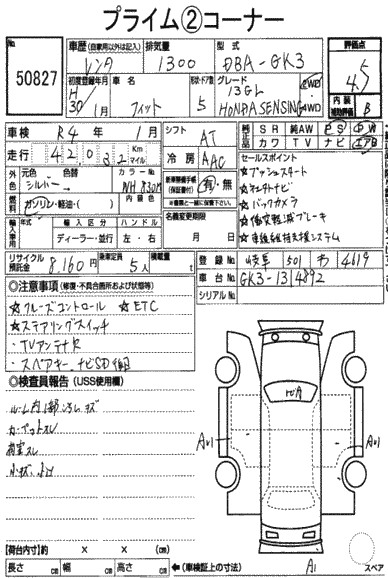 プライム②コーナー
No.
50827
車歴 (自家用以外は記入) レンタ
排気量 1300
型式 DBA-GK3
評価点 4.5
初度登録年月 H 30年 1月
車名 フィット
形状・ドア数 5
グレード 13GL HONDA SENSING
2WD 4WD
内装補助評価 B
車検 R4年 1月
シフト AT
純正品 SR 純AW PS PW カワ TV ナビ エアB
走行 42,032 Km マイル
冷房 AAC
セールスポイント
★プッシュスタート
外装 元色 シルバー 色替
カラーNo. NH830M
内装色
燃料 ガソリン・軽油・( )
新車整備手帳 (保証書付) 有・無
★バックカメラ
★衝突軽減ブレーキ
★車線維持支援システム
名義変更期限 月 日
輸入車用 年式 輸入区分 ディーラー・並行 ハンドル 左・右
リサイクル預託金 8,160円
乗車定員 5人
積載量 t
登録No. 岐阜 501 わ 4619
車台No. GK3-1314892
シリアルNo.
◎注意事項 (修復・不具合箇所および状態等)
☆クルーズコントロール ☆ETC
☆ステアリングスイッチ
・TVアンテナ欠
・スペアキー、ナビSD
◎検査員報告 (USS使用欄)
ルーム内
カーペットスレ
内装スレ
A
A1
A1
A1
スペア
【荷台内寸】 × × (cm)
長さ cm 幅 cm 高さ cm
(車検証上の寸法)